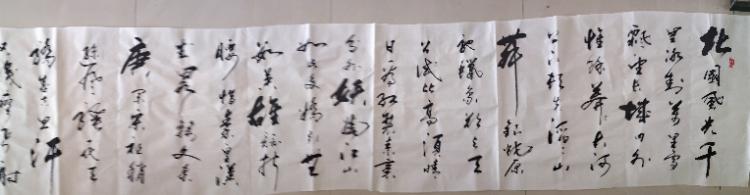 北國風光千
里冰封萬里雪
飄望长城内外
惟餘莽莽大河
上下頓失滔滔山
舞銀蛇原
馳蠟象欲与天
公试比高須晴
日看红装素裹
分外妖娆江山
如此多娇引无
数英雄竞折
腰惜秦皇漢
武略输文采
唐宗宋祖稍
逊风骚一代天
骄成吉思汗
只識彎弓射